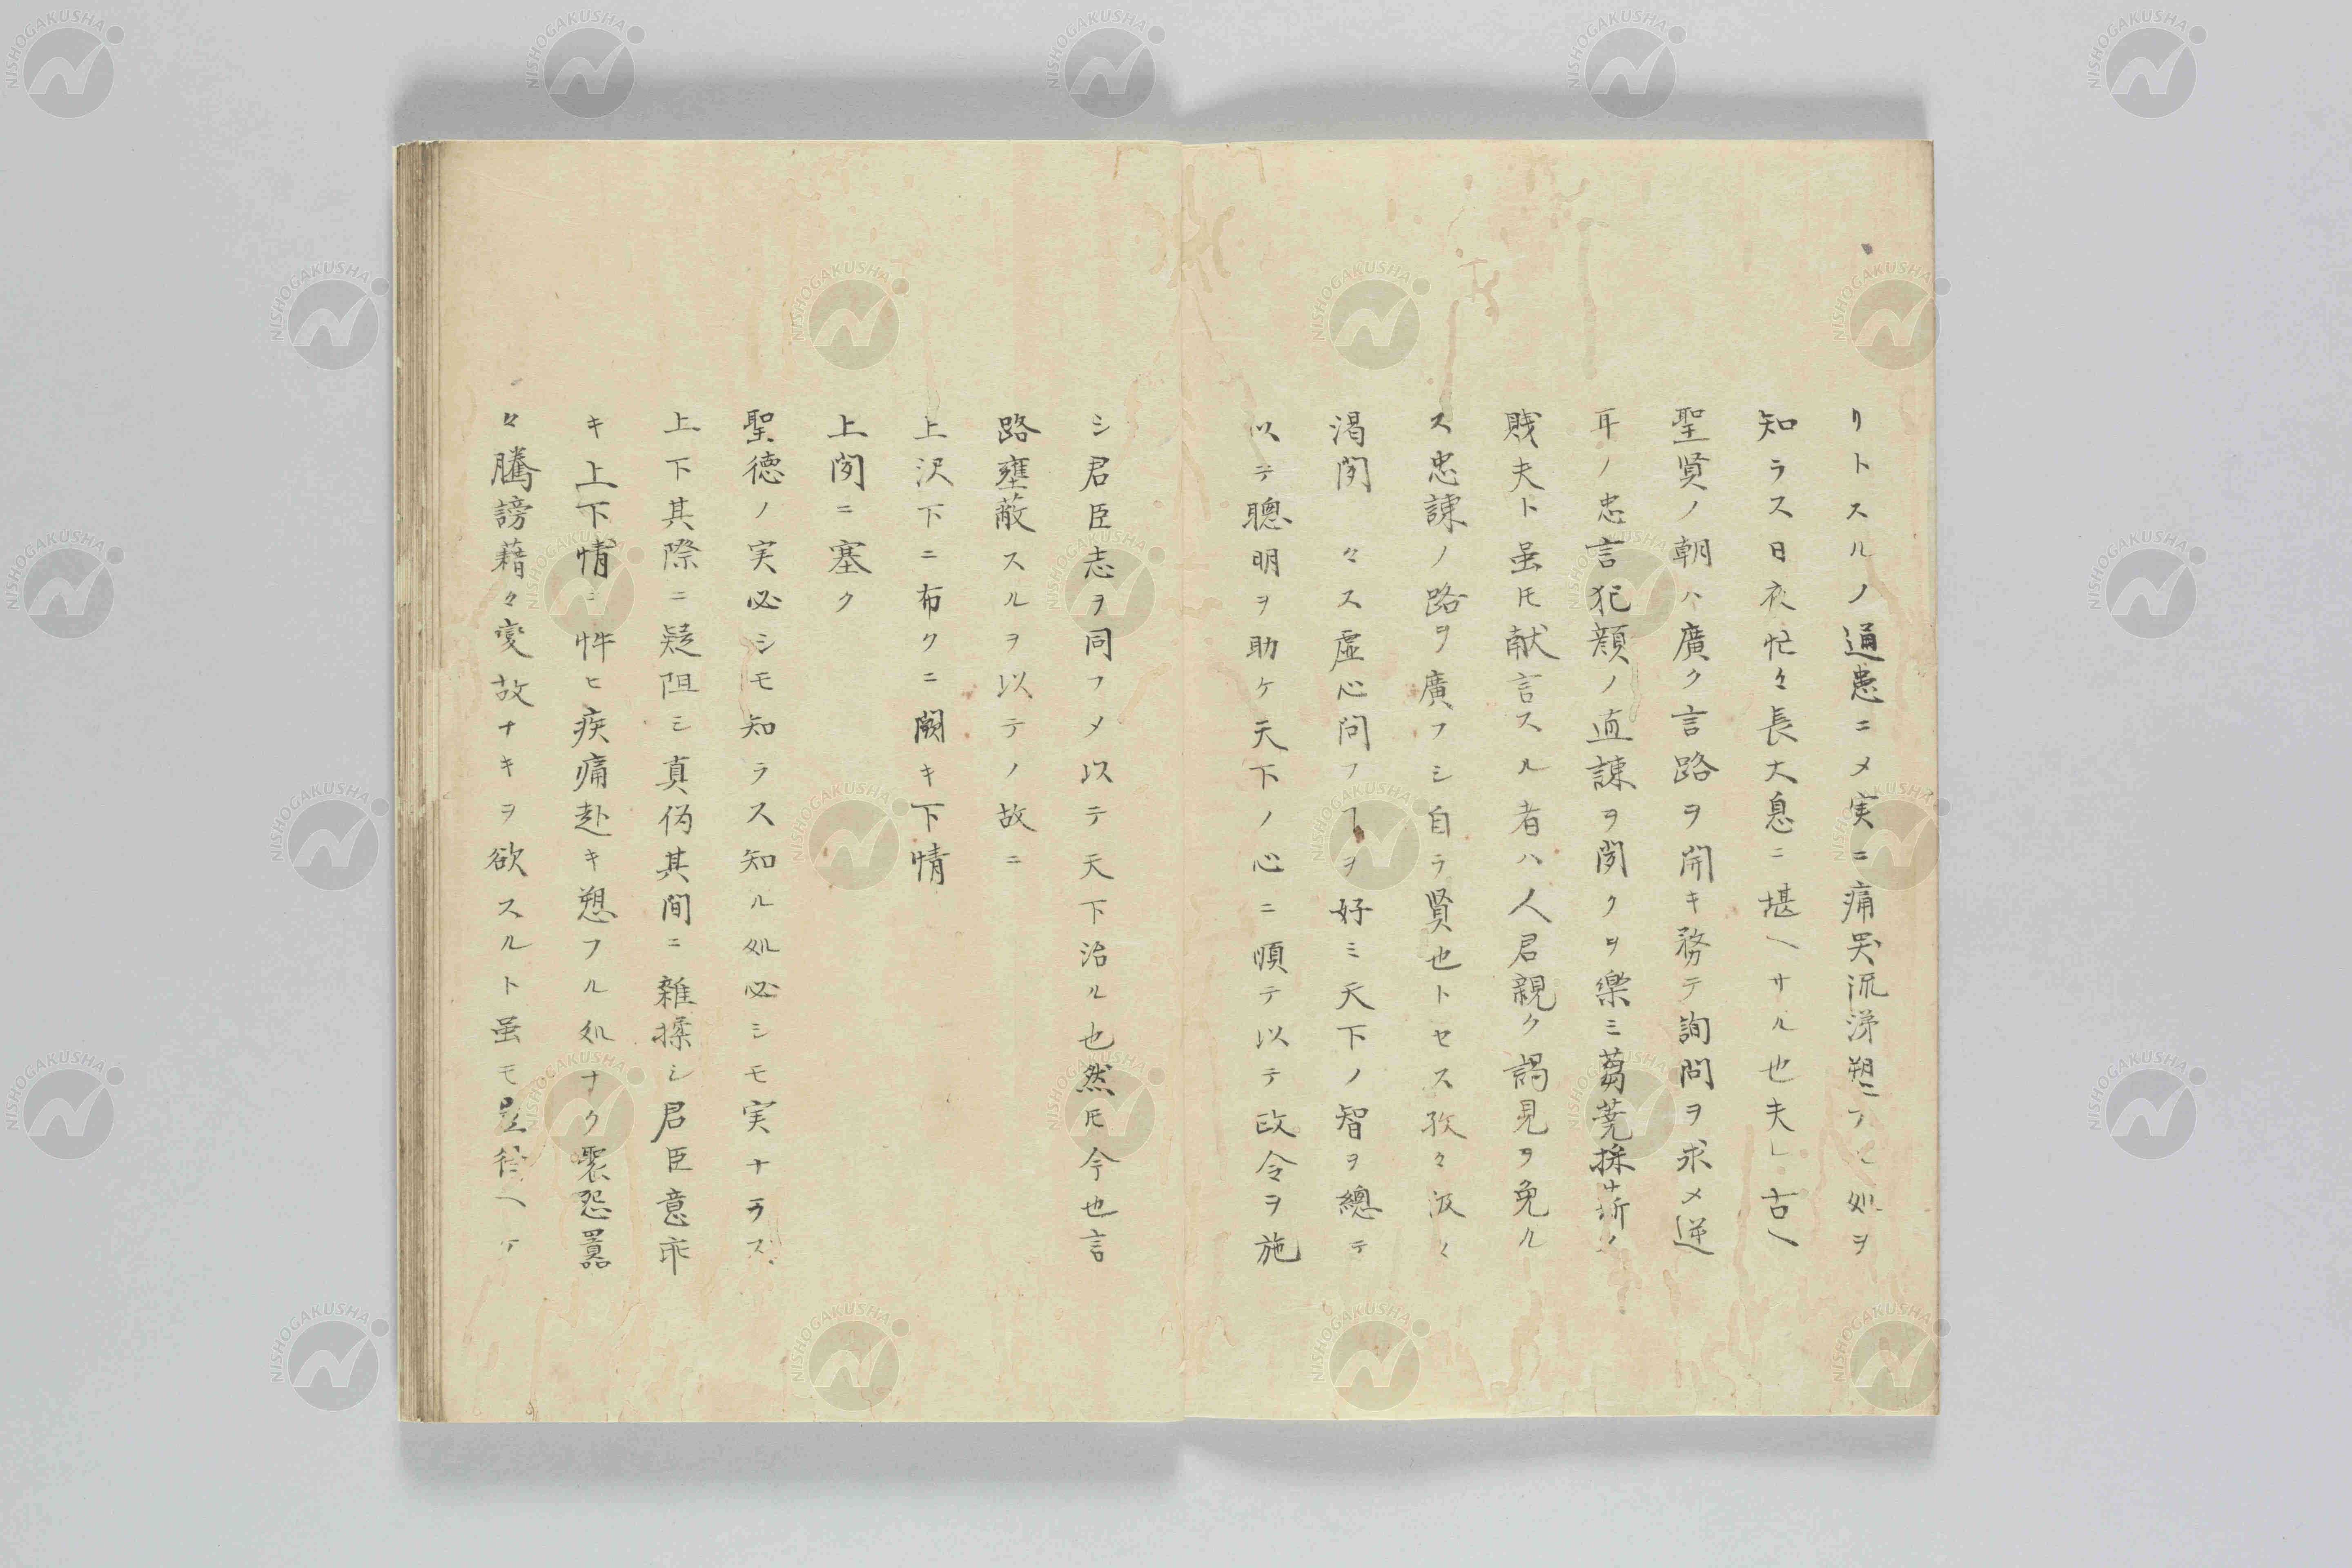 リトスルノ通患ニメ実ニ痛哭流涕塑ニフ処ヲ
知ラス日夜忙々長大息ニ堪ヘサル也夫レ古ヘ
聖賢ノ朝ハ廣ク言路ヲ開キ務テ詢問ヲ求メ逆
耳ノ忠言犯顔ノ直諫ヲ聞クヲ樂ミ蒭蕘採ナ折ノ
賎夫ト虽モ献言スル者ハ人君親ク謁見ヲ免ル
ス忠諫ノ路ヲ廣フシ自ラ賢也トセス孜々汲々
渇聞々ス虚心問フヿヲ好ミ天下ノ智ヲ總テ
以テ聰明ヲ助ケ天下ノ心ニ順テ以テ政令ヲ施
シ君臣志ヲ同フメ以テ天下治ル也然モ今也言
路壅蔽スルヲ以テノ故ニ
上沢下ニ布クニ闕キ下情
上聞ニ塞ク
聖徳ノ実必シモ知ラス知ル処必シモ実ナラズ
上下其際ニ疑阻シ真偽其間ニ雜揉シ君臣意乖
キ上下情ニ忤ヒ疾痛赴キ愬フル処ナク衆怨囂
々騰謗藉々変故ナキヲ欲スルト虽モ豈得ヘケ
NISHOGAKUSHA